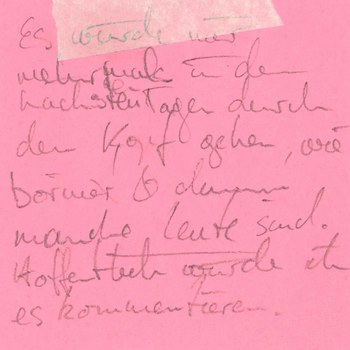 Es würde mir
mehrmals in den
nächsten Tagen durch
den Kopf gehen, wie
manche Leute sind.
Hoffentlich würde ich
es kommentieren.